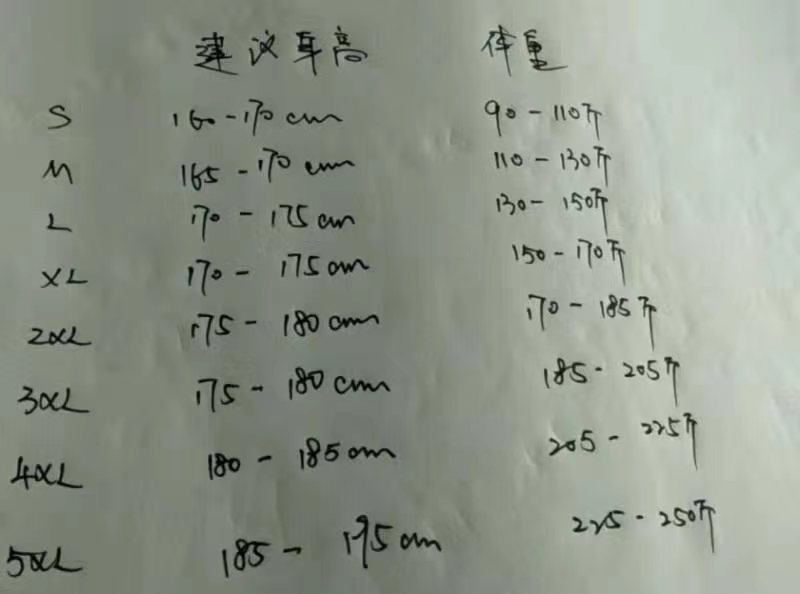 建议身高 体重
S 160-170cm 90-110斤
M 165-170cm 110-130斤
L 170-175cm 130-150斤
XL 170-175cm 150-170斤
2XL 175-180cm 170-185斤
3XL 175-180cm 185-205斤
4XL 180-185cm 205-225斤
5XL 185-195cm 225-250斤